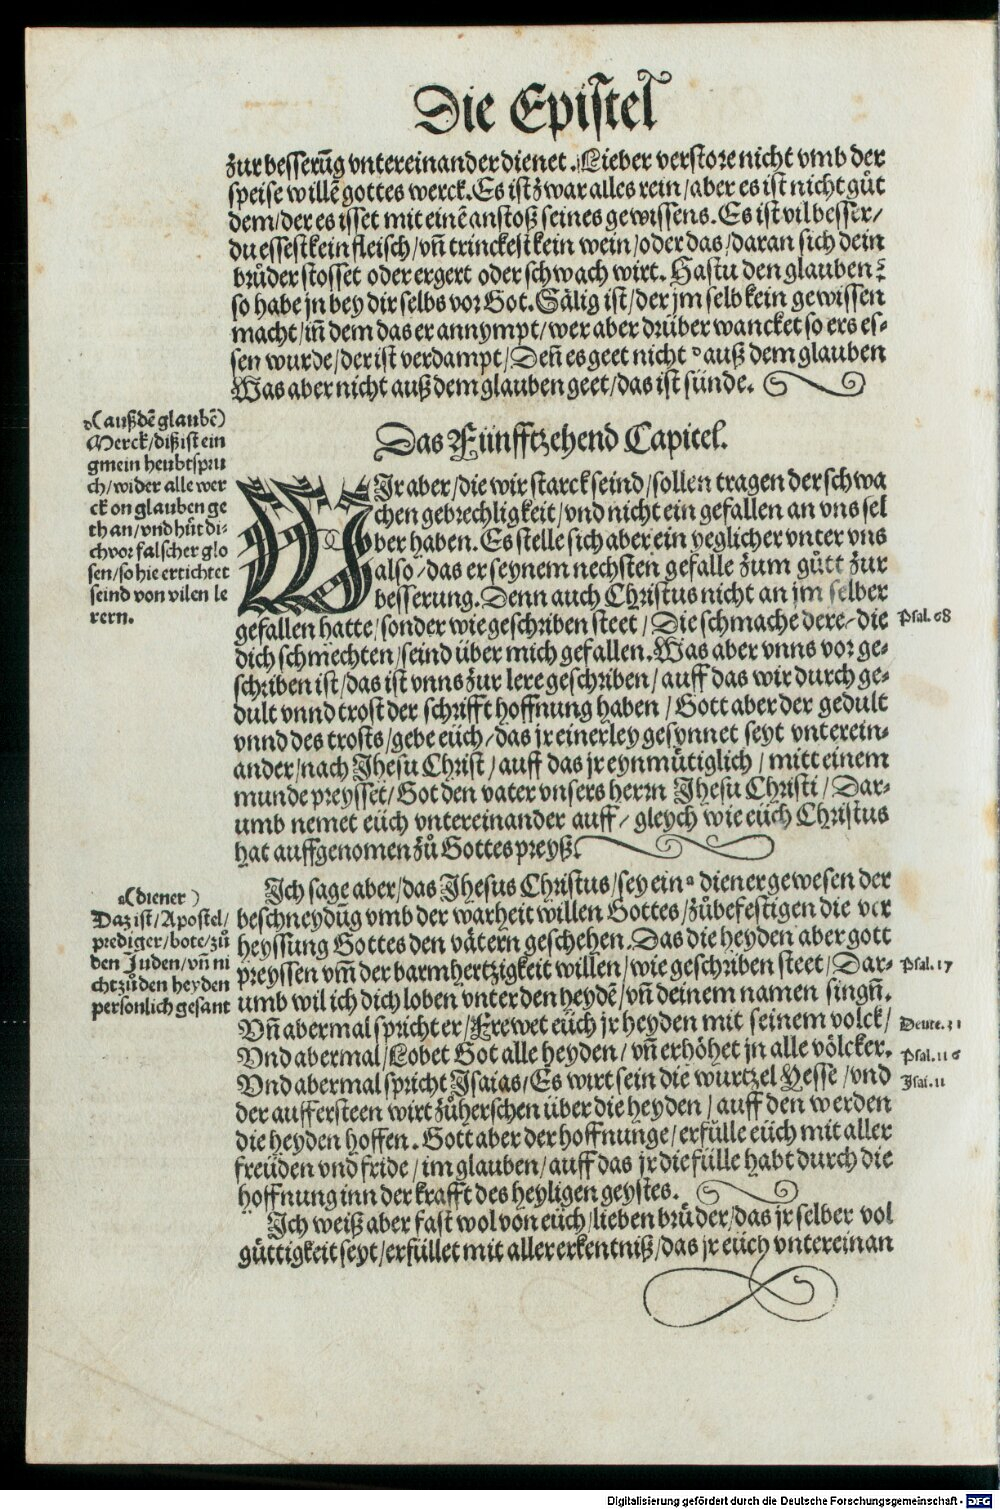 Die Epistel
zur besserũg vntereinander dienet. Lieber verstore nicht vmb der
speise willẽ gottes werck. Es ist zwar alles rein / aber es ist nicht gůt
dem / der es isset mit einẽ anstoß seines gewissens. Es ist vil besser /
du essest kein fleisch / vñ trinckest kein wein / oder das / daran sich dein
brůder stosset oder ergert oder schwach wirt. Hastu den glauben?
so habe jn bey dir selbs vor Got. Sälig ist / der jm selb kein gewissen
macht / iñ dem das er annympt / wer aber drüber wancket so ers es-
sen wurde / der ist verdampt / Deñ es geet nicht auß dem glauben
Was aber nicht auß dem glauben geet / das ist sünde.
(außdẽ glaubẽ)
Merck / diß ist ein
gmein heubtspru
ch / wider alle wer
ck on glauben ge
than / vnd hüt di-
ch vor falscher glo
sen / so hie ertichtet
seind von vilen le
rern.
Das Fünfftzehend Capitel.
WJr aber / die wir starck seind / sollen tragen der schwa
chen gebrechligkeit / vnd nicht ein gefallen an vns sel
ber haben. Es stelle sich aber ein yeglicher vnter vns
also / das er seynem nechsten gefalle zum gůtt zur
besserung. Denn auch Christus nicht an jm selber
gefallen hatte / sonder wie geschriben steet / Die schmache dere / die
Psal. 68
dich schmechten / seind über mich gefallen. Was aber vnns vor ge-
schriben ist / das ist vnns zur lere geschriben / auff das wir durch ge-
dult vnnd trost der schrifft hoffnung haben / Gott aber der gedult
vnnd des trosts / gebe eüch / das jr einerley gesynnet seyt vnterein-
ander / nach Jhesu Christ / auff das jr eynmütiglich / mitt einem
munde preysset / Got den vater vnsers herrn Jhesu Christi / Dar-
umb nemet eüch vntereinander auff / gleych wie eüch Christus
hat auffgenomen zů Gottes preyß.
a(diener)
Daz ist / Apostel /
prediger / bote / zů
den Juden / vñ ni
cht zů den heyden
personlich gesant
Ich sage aber / das Jhesus Christus / sey ein a diener gewesen der
beschneydũg vmb der warheit willen Gottes / zů befestigen die ver
heyssung Gottes den vätern geschehen. Das die heyden aber gott
preyssen vm̃ der barmhertzigkeit willen / wie geschriben steet / Dar-
Psal. 17
umb wil ich dich loben vnter den heydẽ / vñ deinem namen singñ.
Vñ abermal spricht er / Frewet eüch jr heyden mit seinem volck /
Deute. 31
Vnd abermal / Lobet Got alle heyden / vñ erhöhet jn alle völcker.
Psal. 116
Vnd abermal spricht Jsaias / Es wirt sein die wurtzel Yesse / vnd
Jsai. 11
der auffersteen wirt zů herschen über die heyden / auff den werden
die heyden hoffen. Gott aber der hoffnunge / erfülle eüch mit aller
freüden vnd fride / im glauben / auff das jr die fülle habt durch die
hoffnung inn der krafft des heyligen geystes.
Ich weiß aber fast wol von eüch / lieben brüder / das jr selber vol
güttigkeit seyt / erfüllet mit aller erkentniß / das jr eüch vntereinan
Digitalisierung gefördert durch die Deutsche Forschungsgemeinschaft - DFG